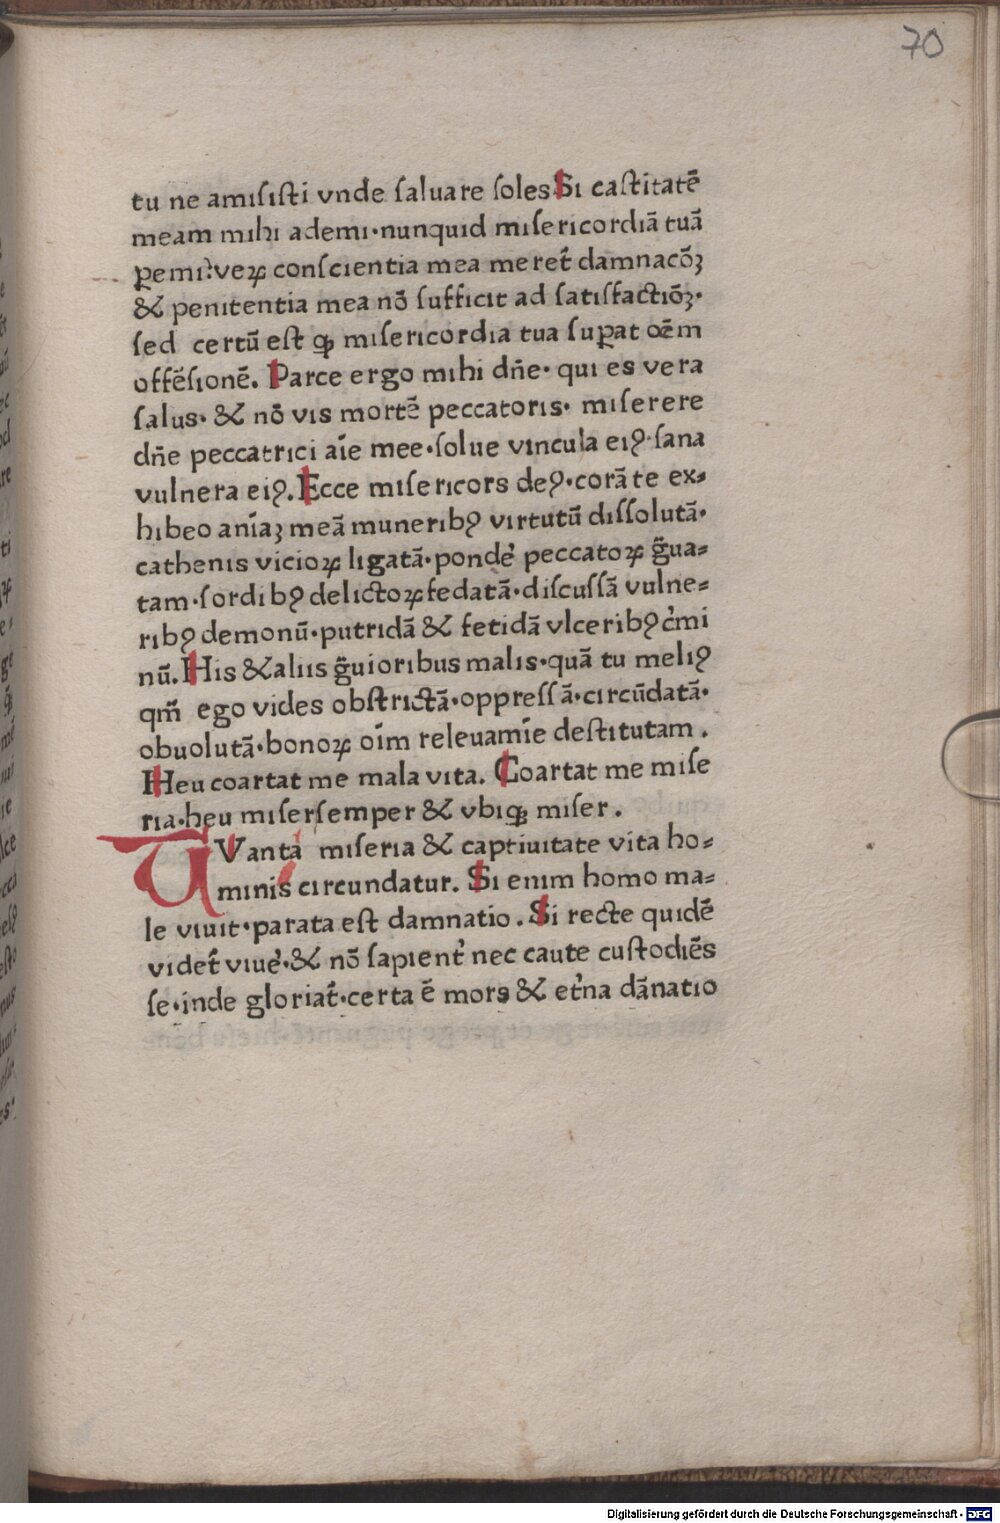 70
tu ne amisisti vnde saluare soles Si castitatē
meam mihi ademi·nunquid misericordiā tuā
ꝑemi?veꝝ conscientia mea meret᷑ damnacōꝫ
& penitentia mea nō sufficit ad satisfactiōꝫ·
sed certū est ꝙ misericordia tua suꝑat oēm
offēsionē. Parce ergo mihi dn̄e· qui es vera
salus· & nō vis mortē peccatoris· miserere
dn̄e peccatrici aīe mee·solue vincula eiꝰ·sana
vulnera eiꝰ. Ecce misericors deꝰ·corā te ex⸗
hibeo anīaꝫ meā muneribꝰ virtutū dissolutā·
cathenis vicioꝝ ligatā·ponde᷒ peccatoꝝ g̃ua⸗
tam·sordibꝰ delictoꝝ fedatā·discussā vulne⸗
ribꝰ demonū·putridā & fetidā vlceribꝰ c᷒mi
nū. His & aliis g̃uioribus malis·quā tu meliꝰ
qm̄ ego vides obstrictā·oppressā·circūdatā·
obuolutā·bonoꝝ oīm releuamīe destitutam .
Heu coartat me mala vita. Coartat me mise
ria·heu miser semper & vbiqꝫ miser .
QVanta miseria & captiuitate vita ho⸗
minis circundatur. Si enim homo ma⸗
le viuit·parata est damnatio . Si recte quidē
videt᷑ viue᷒·& nō sapient᷒ nec caute custodiēs
se·inde gloriat᷑·certa ē mors & et᷒na dānatio
Digitalisierung gefördert durch die Deutsche Forschungsgemeinschaft - DFG